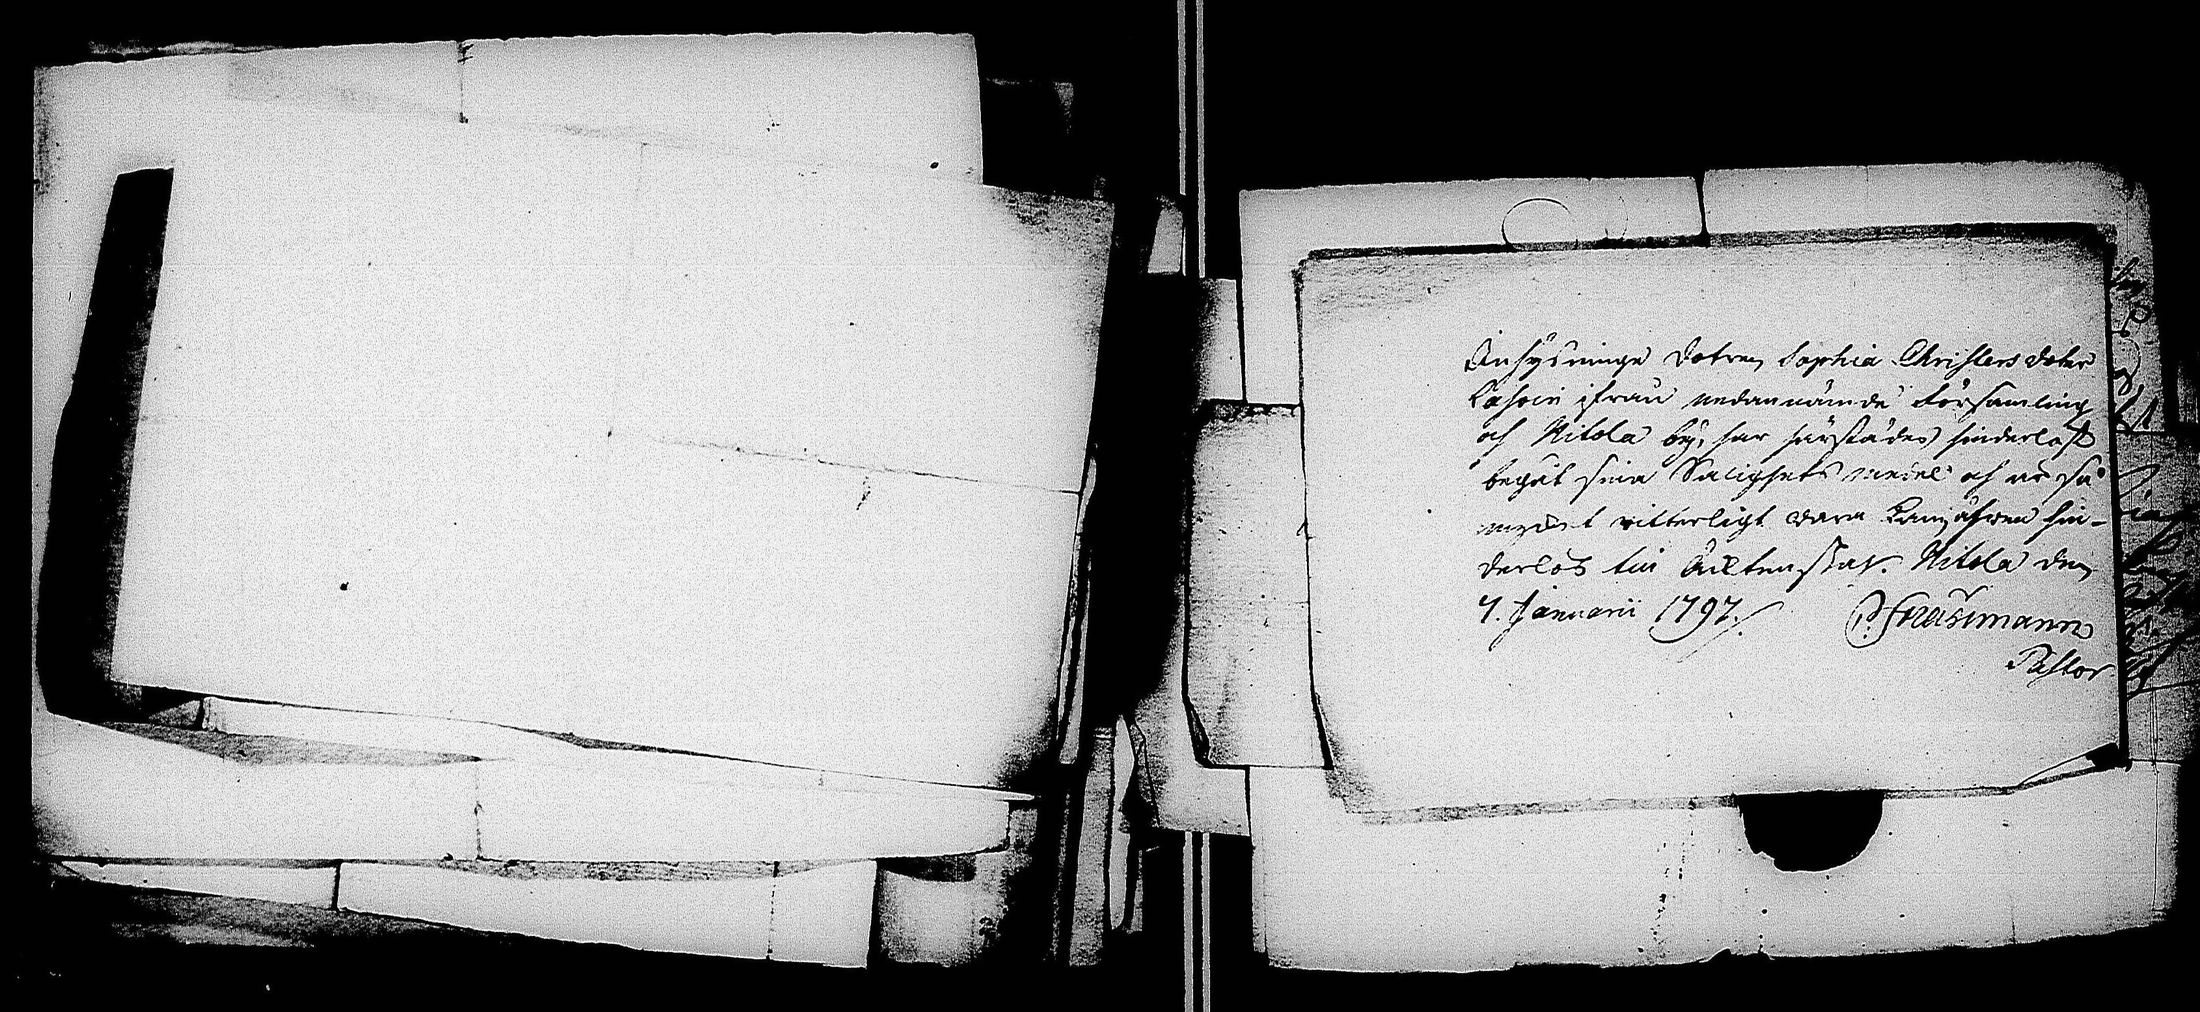 Inhysninge Dotren Sophia Christers doter
Kahoin ifrån nedannämde Församling
och Nitola by, har härstädes hinderlöst
begåt sina Salighets medel och är så
mycket vitterligt vara Kan, äfven hin-
derlös til Äcktenskap. Nitola den
7. Januarii 1797.
Stråhlmann
Pastor